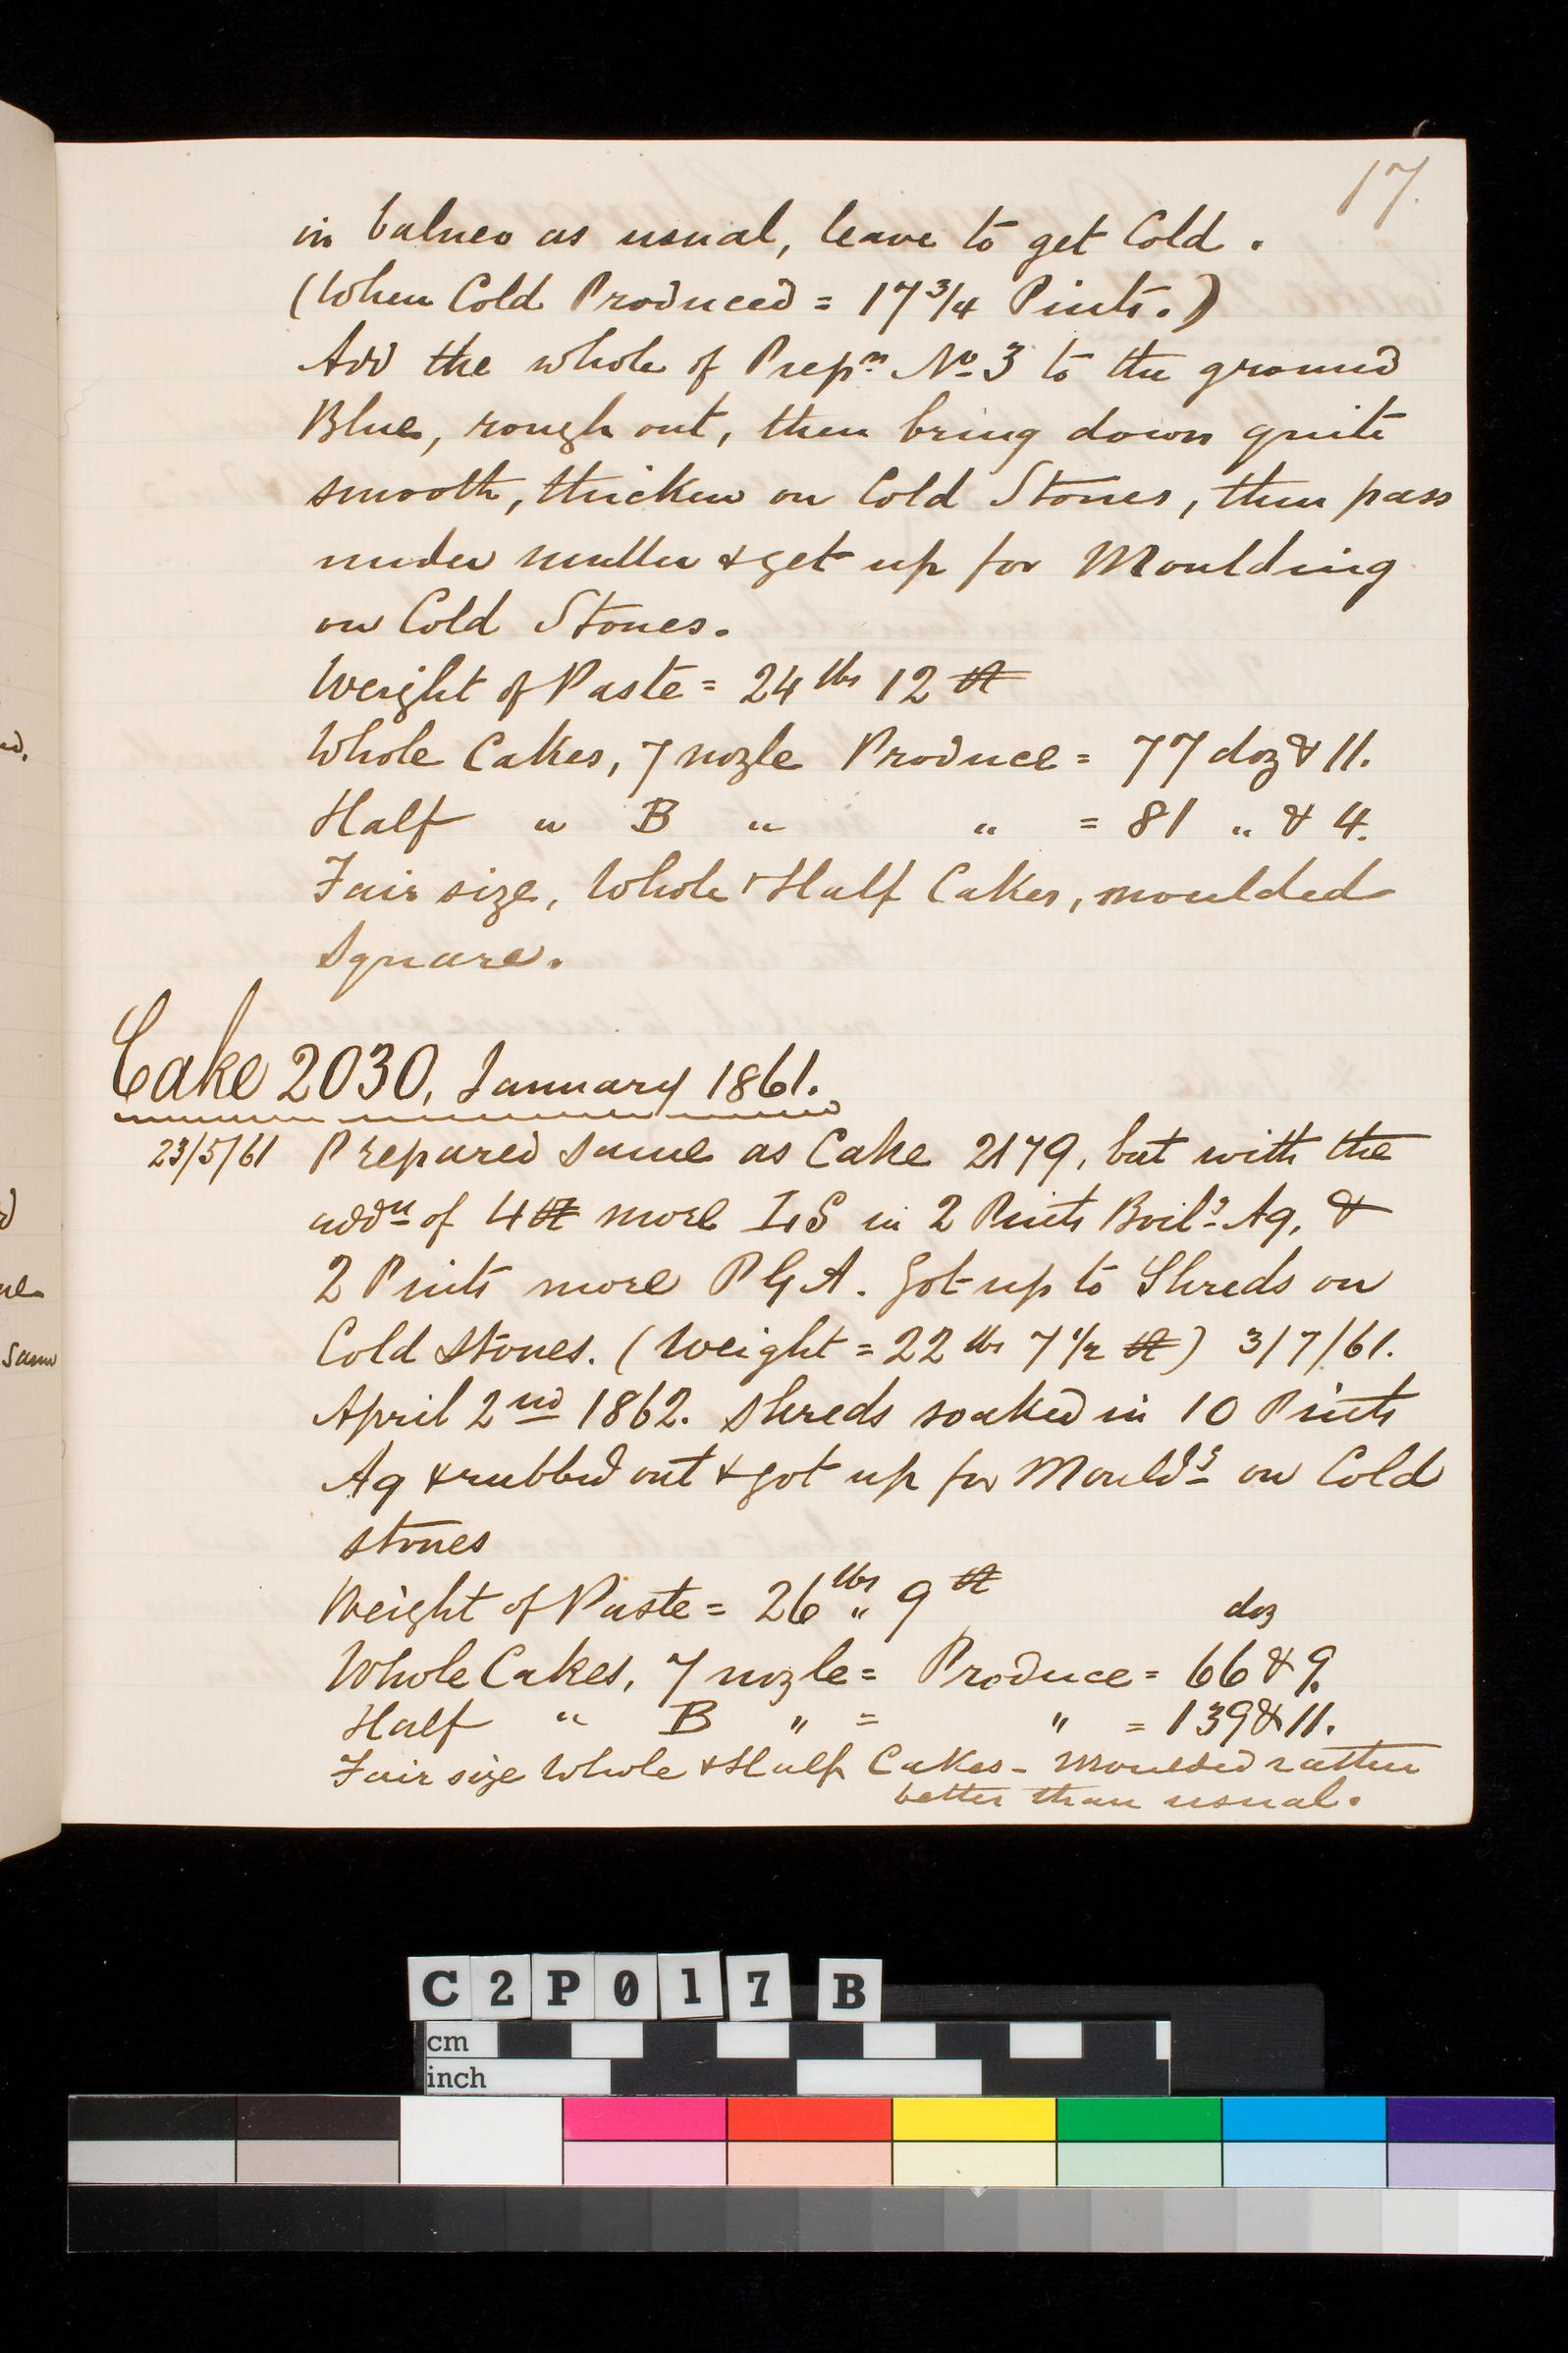 17.
in balneo as usual, leave to get Cold.
(When Cold Produced = 17 3/4 Pints.)
Add the whole of Prepn No 3 to the ground
Blue, rough out, then bring down quite
smooth, thicken on Cold Stones, then pass
under muller & get up for Moulding
on Cold Stones.
Weight of Paste = 24 lbs 12
Whole Cakes, 7 nozle Produce = 77 doz & 11.
Half " B " " = 81 " & 4.
Fair size, Whole & Half Cakes, moulded
square.
Cake 2030, January 1861.
23/5/61 Prepared same as Cake 2179, but with the
addn of 4 more in 2 Pints Boilg Aq, &
2 Pints more P G A. Got up to Shreds on
Cold stones. (Weight = 22 lbs 7 1/2 ) 3/7/61.
April 2nd 1862. Shreds soaked in 10 Pints
Aq & rubbed out & got up for Mouldg on Cold
stones
Weight of Paste = 26 lbs " 9
doz
Whole Cakes, 7 nozle = Produce = 66 & 9.
Half " B " = " = 139 & 11.
Fair size Whole & Half Cakes - Moulded rather
better than usual.
ed.
same
C2P017 B
cm
inch